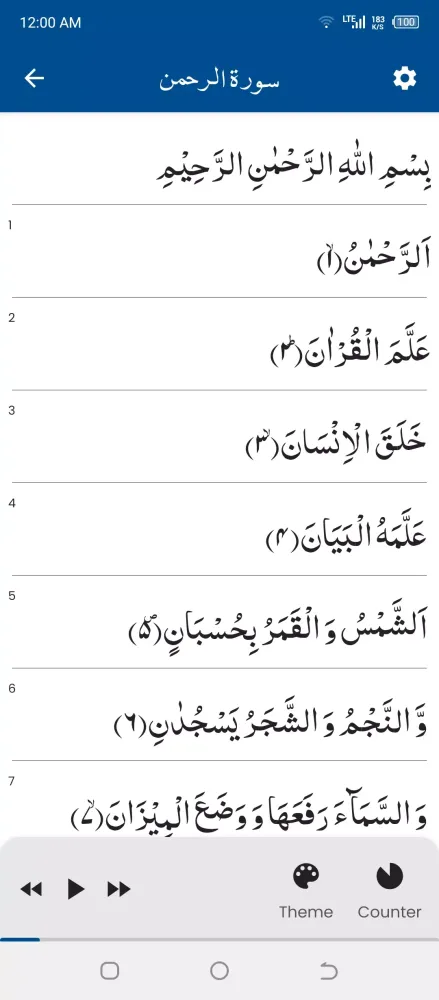 12:00 AM LTE 183 K/S 100
سورة الرحمن
بِسْمِ اللّٰهِ الرَّحْمٰنِ الرَّحِیْمِ
1
اَلرَّحْمٰنُۙ(۱)
2
عَلَّمَ الْقُرْاٰنَؕ(۲)
3
خَلَقَ الْاِنْسَانَۙ(۳)
4
عَلَّمَهُ الْبَیَانَ(۴)
5
اَلشَّمْسُ وَ الْقَمَرُ بِحُسْبَانٍ۪(۵)
6
وَّ النَّجْمُ وَ الشَّجَرُ یَسْجُدٰنِ(۶)
7
وَ السَّمَآءَ رَفَعَهَا وَ وَضَعَ الْمِیْزَانَۙ(۷)
Theme Counter